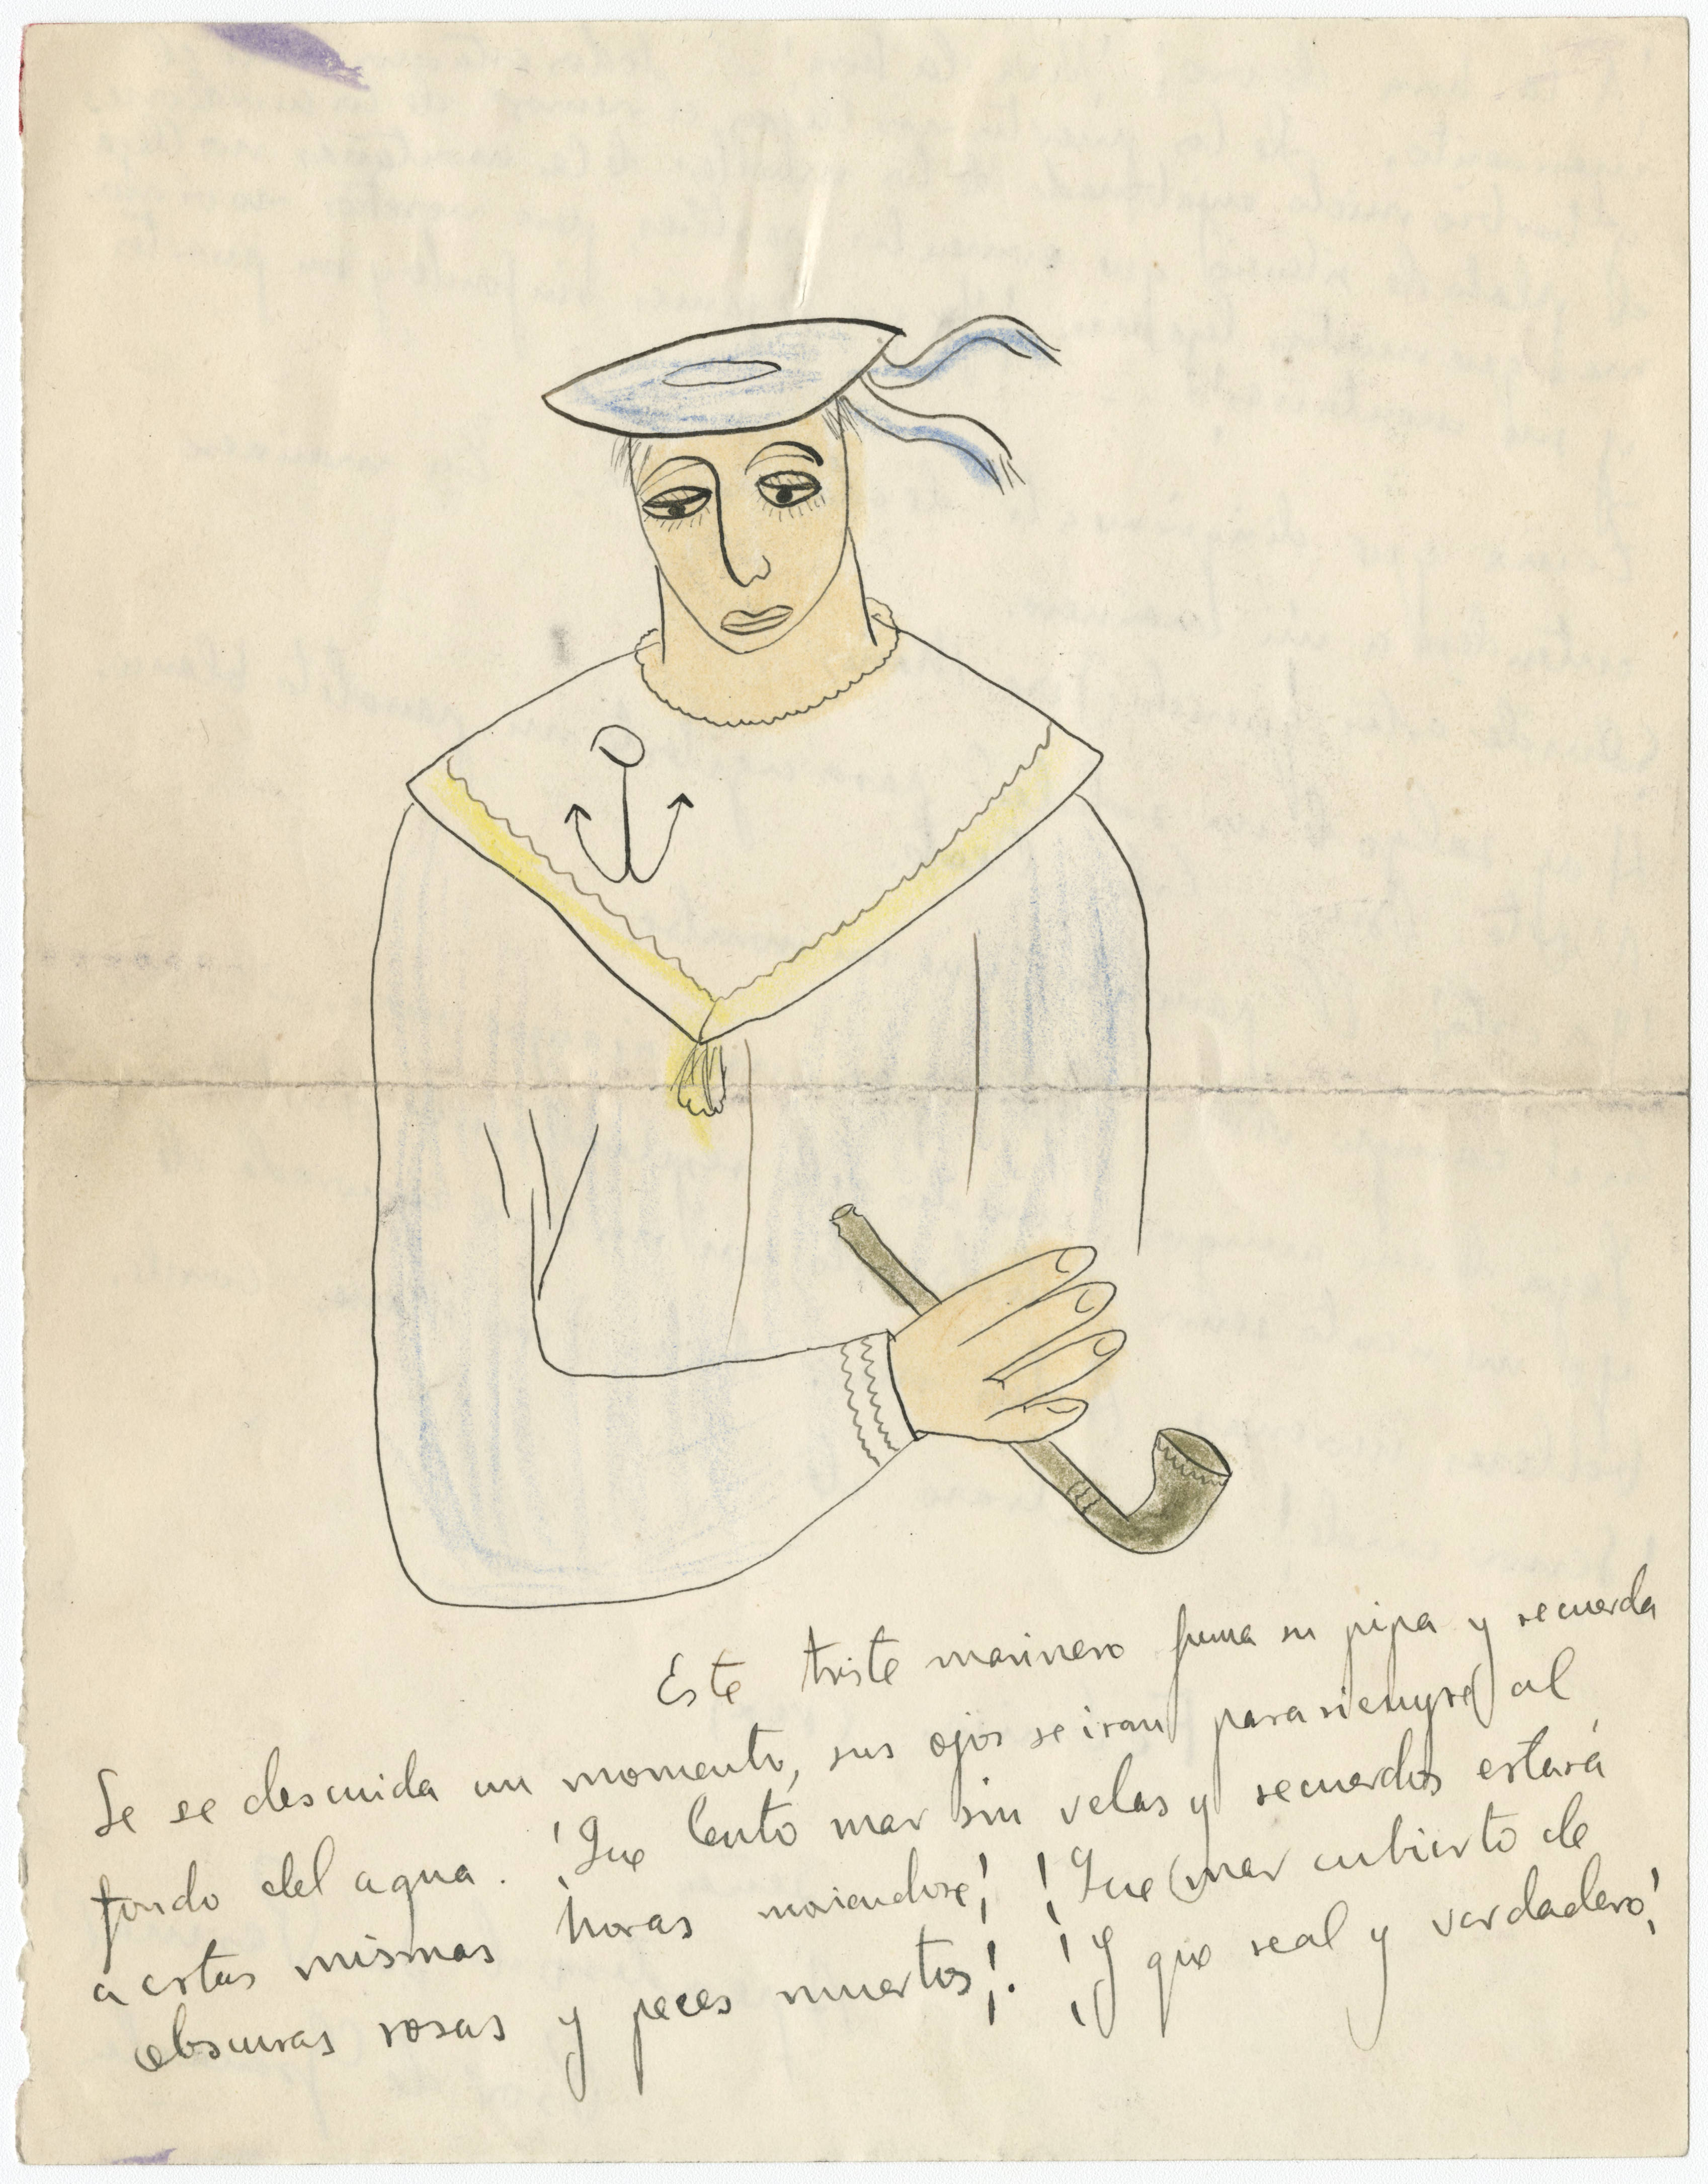 Este triste marinero fuma su pipa y recuerda
Se se descuida un momento, sus ojos se iran para siempre al
fondo del agua. ¡Que lento mar sin velas y recuerdos estará
a estas mismas horas moriendose! ¡Que mar cubierto de
obscuras rosas y peces muertos!. ¡Y que real y verdadero!